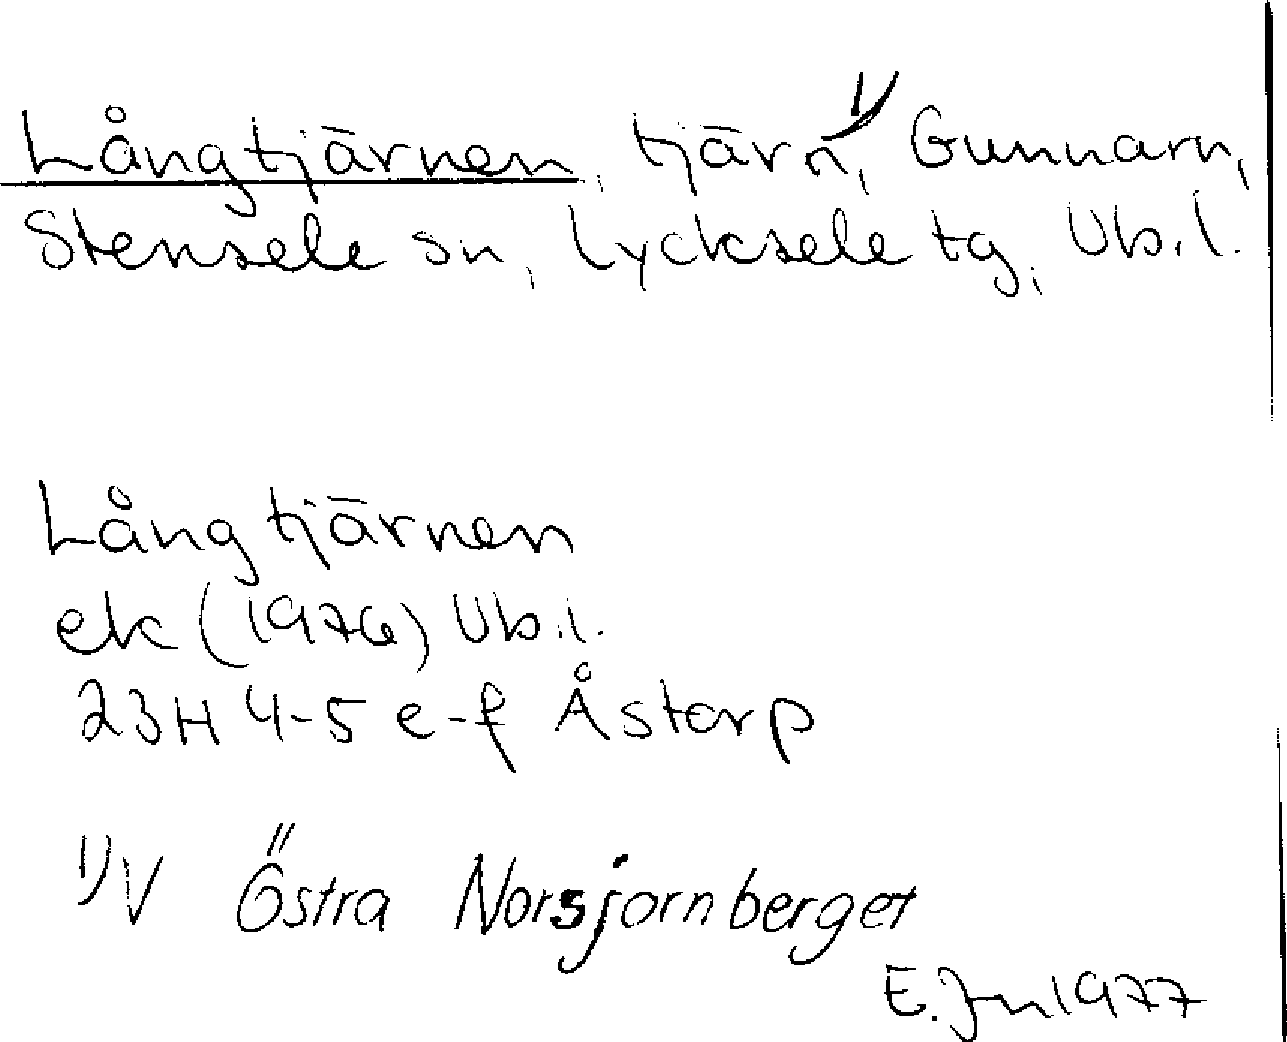 Långtjärnen, tjärn 1), Gunnarn,
Stensele sn, Lycksele tg, Vb.l.
Långtjärnen
ek (1976) Vb.l.
23H 4-5 e-f Åstorp
1) V Östra Norsjornberget
E. Jn 1977